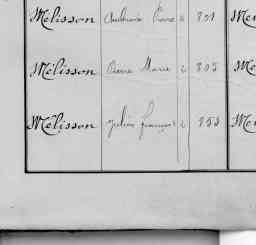 Mélisson Ambroise Pierre 2 801 Me
Mélisson Pierre Marie 2 805 Me
Mélisson Julien François 2 Me